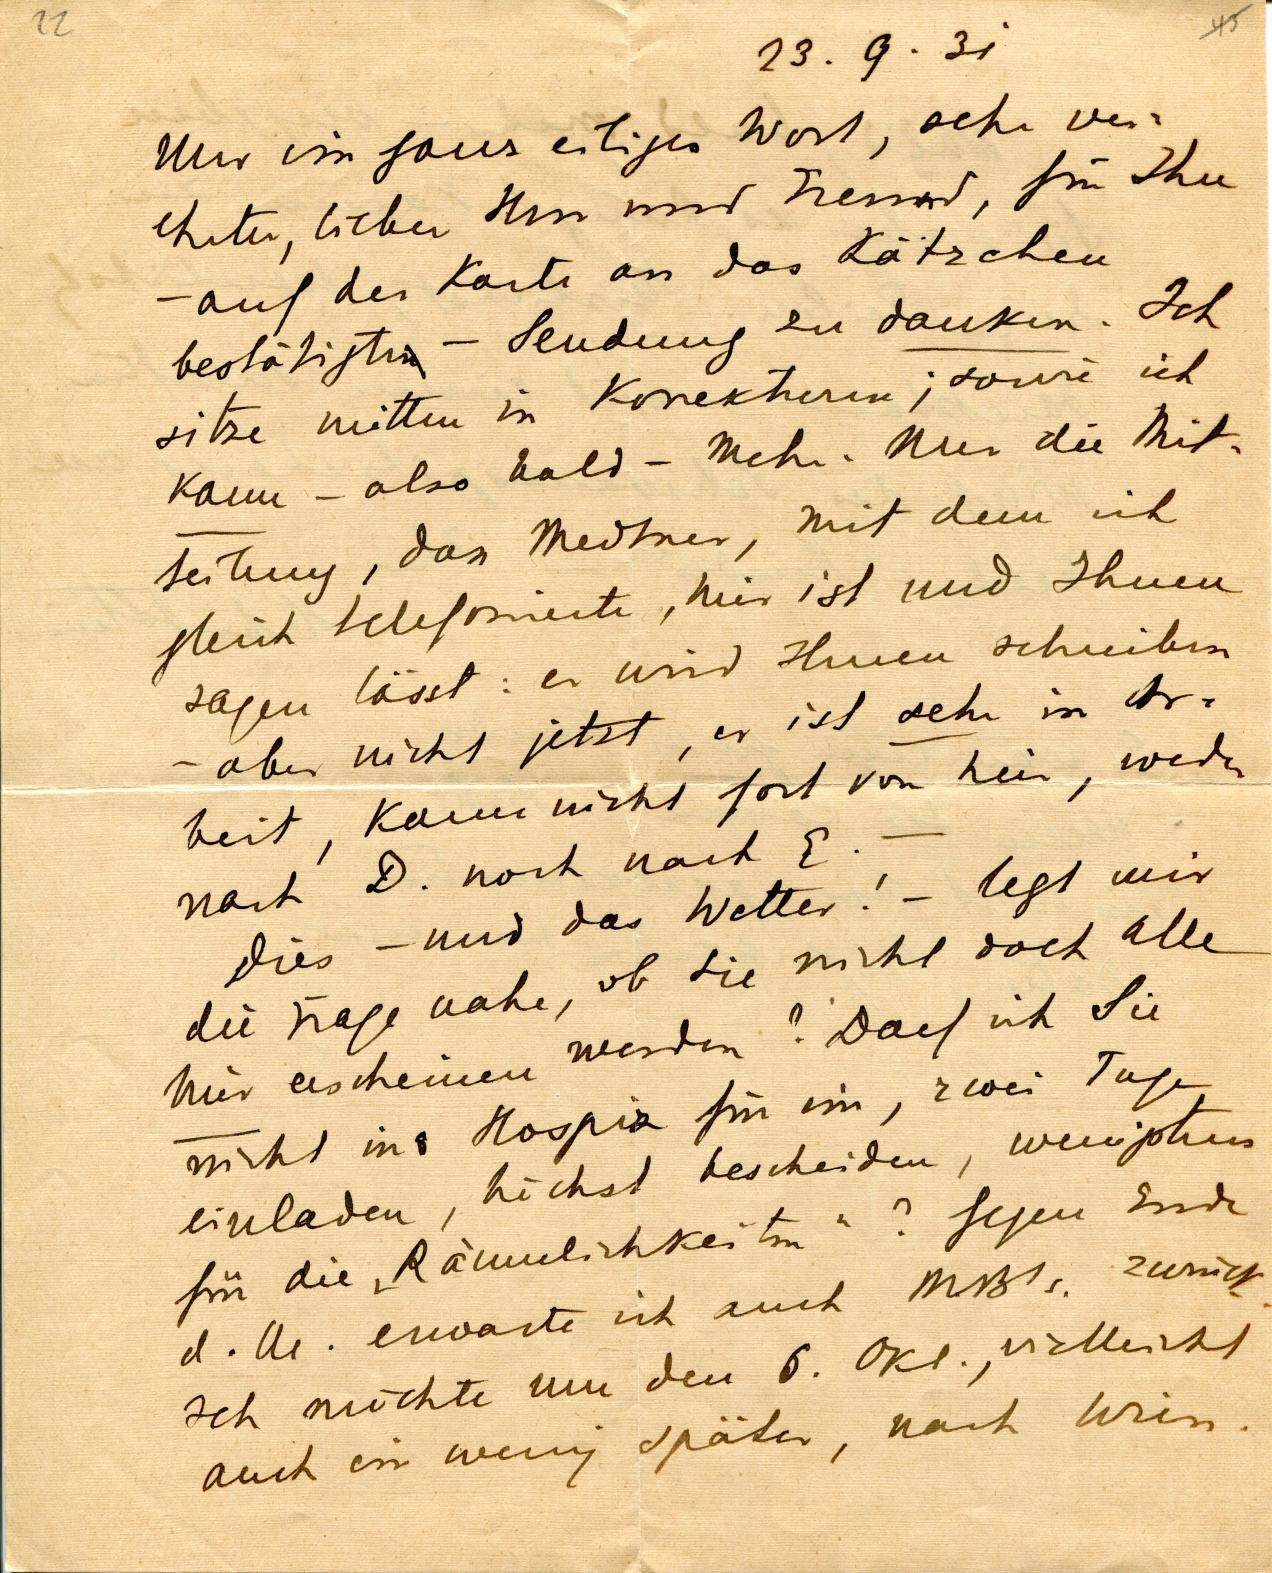 22
45
23. 9. 31
Nur ein ganz eiliges Wort, sehr ver-
ehrter, lieber Herr und Freund, für Ihre
– auf der Karte an das Kätzchen
bestätigten – Sendung zu danken. Ich
sitze mitten in Korrekturen; sowie ich
kann – also bald – mehr. Nur die Mit-
teilung, dass Medtner, mit dem ich
gleich telefonierte, hier ist und Ihnen
sagen lässt: er wird Ihnen schreiben
– aber nicht jetzt, er ist sehr in Ar-
beit, kann nicht fort von hier, weder
nach D. noch nach E. –
Dies – und das Wetter! – legt mir
die Frage nahe, ob Sie nicht doch alle
hier erscheinen werden? Darf ich Sie
nicht ins Hospiz für ein, zwei Tage
einladen, höchst bescheiden, wenigstens
für die „Räumlichkeiten“? Gegen Ende
d. M. erwarte ich auch zurück.
Ich möchte um den 6. Okt., vielleicht
auch ein wenig später, nach Wien.